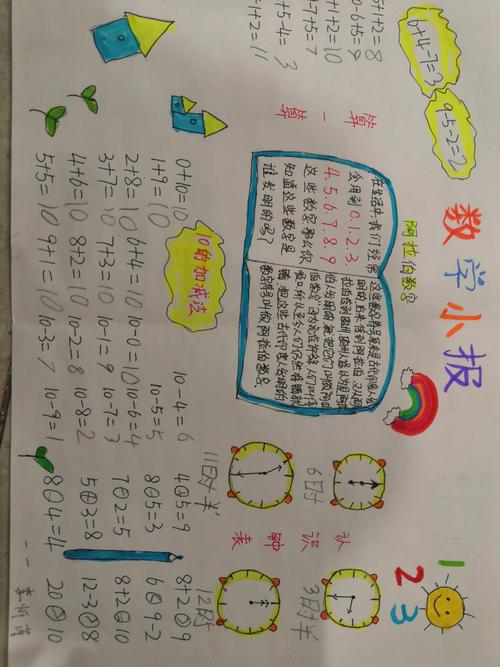 6+4-7=3
9-5-2=2
数学小报
1 2 3
5+1+2=8
0-6+5=9
+1+2=10
9-7+5=7
+5-4=3
+1+2=11
算一算
阿拉伯数字
在生活中,我们经常
会用到0.1.2.3.
4.5.6.7.8.9
这些数字,那么你
知道这些数字是
谁发明的吗?
这些数字符号原来是古代印度人发
明的,后来传到阿拉伯,又从阿
拉伯传到欧洲,欧洲人误以为是阿拉
伯人发明的,就把它们叫做阿拉
伯数字,因为流传许多年,人们叫得
顺口,所以至今人们仍然将错就
错,把这些古代印度人发明的
数字符号叫做阿拉伯数字.
6时
3时半
认识钟表
11时半
12时
10的加减法
0+10=10
1+9=10
2+8=10 6+4=10 10-0=10 10-6=4
3+7=10 7+3=10 10-1=9 10-7=3
4+6=10 8+2=10 10-2=8 10-8=2
5+5=10 9+1=10 10-3=7 10-9=1
10-4=6
10-5=5
4⊕5=9
8⊖5=3
7⊖2=5
5⊕3=8
8⊖4=4
8+2 9
6 9-2
8+2 10
12-3 8
20 10